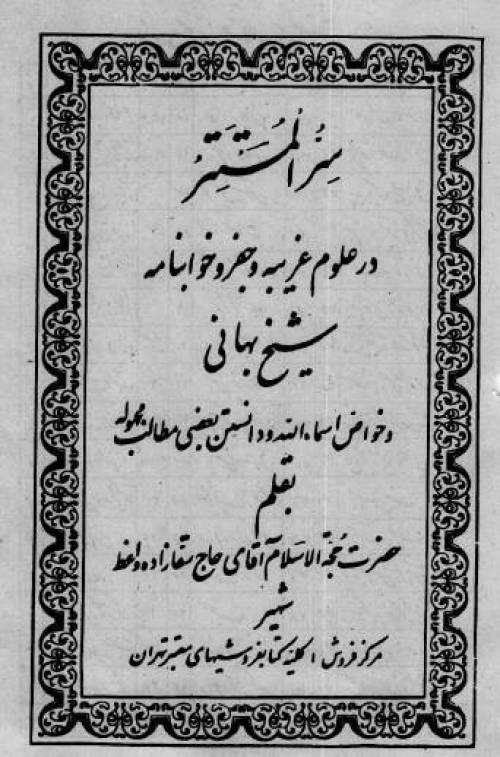 سِرُّ المُسْتَتِرُ
در علوم غریبه و جفر و خوابنامه
شیخ بهائی
و خواص اسماء الله و دانستن بعضی مطالب مجهوله
بقلم
حضرت حجّة الاسلام آقای حاج سقازاده واعظ
شهیر
مرکز فروش : کلیهٔ کتابفروشیهای معتبر تهران